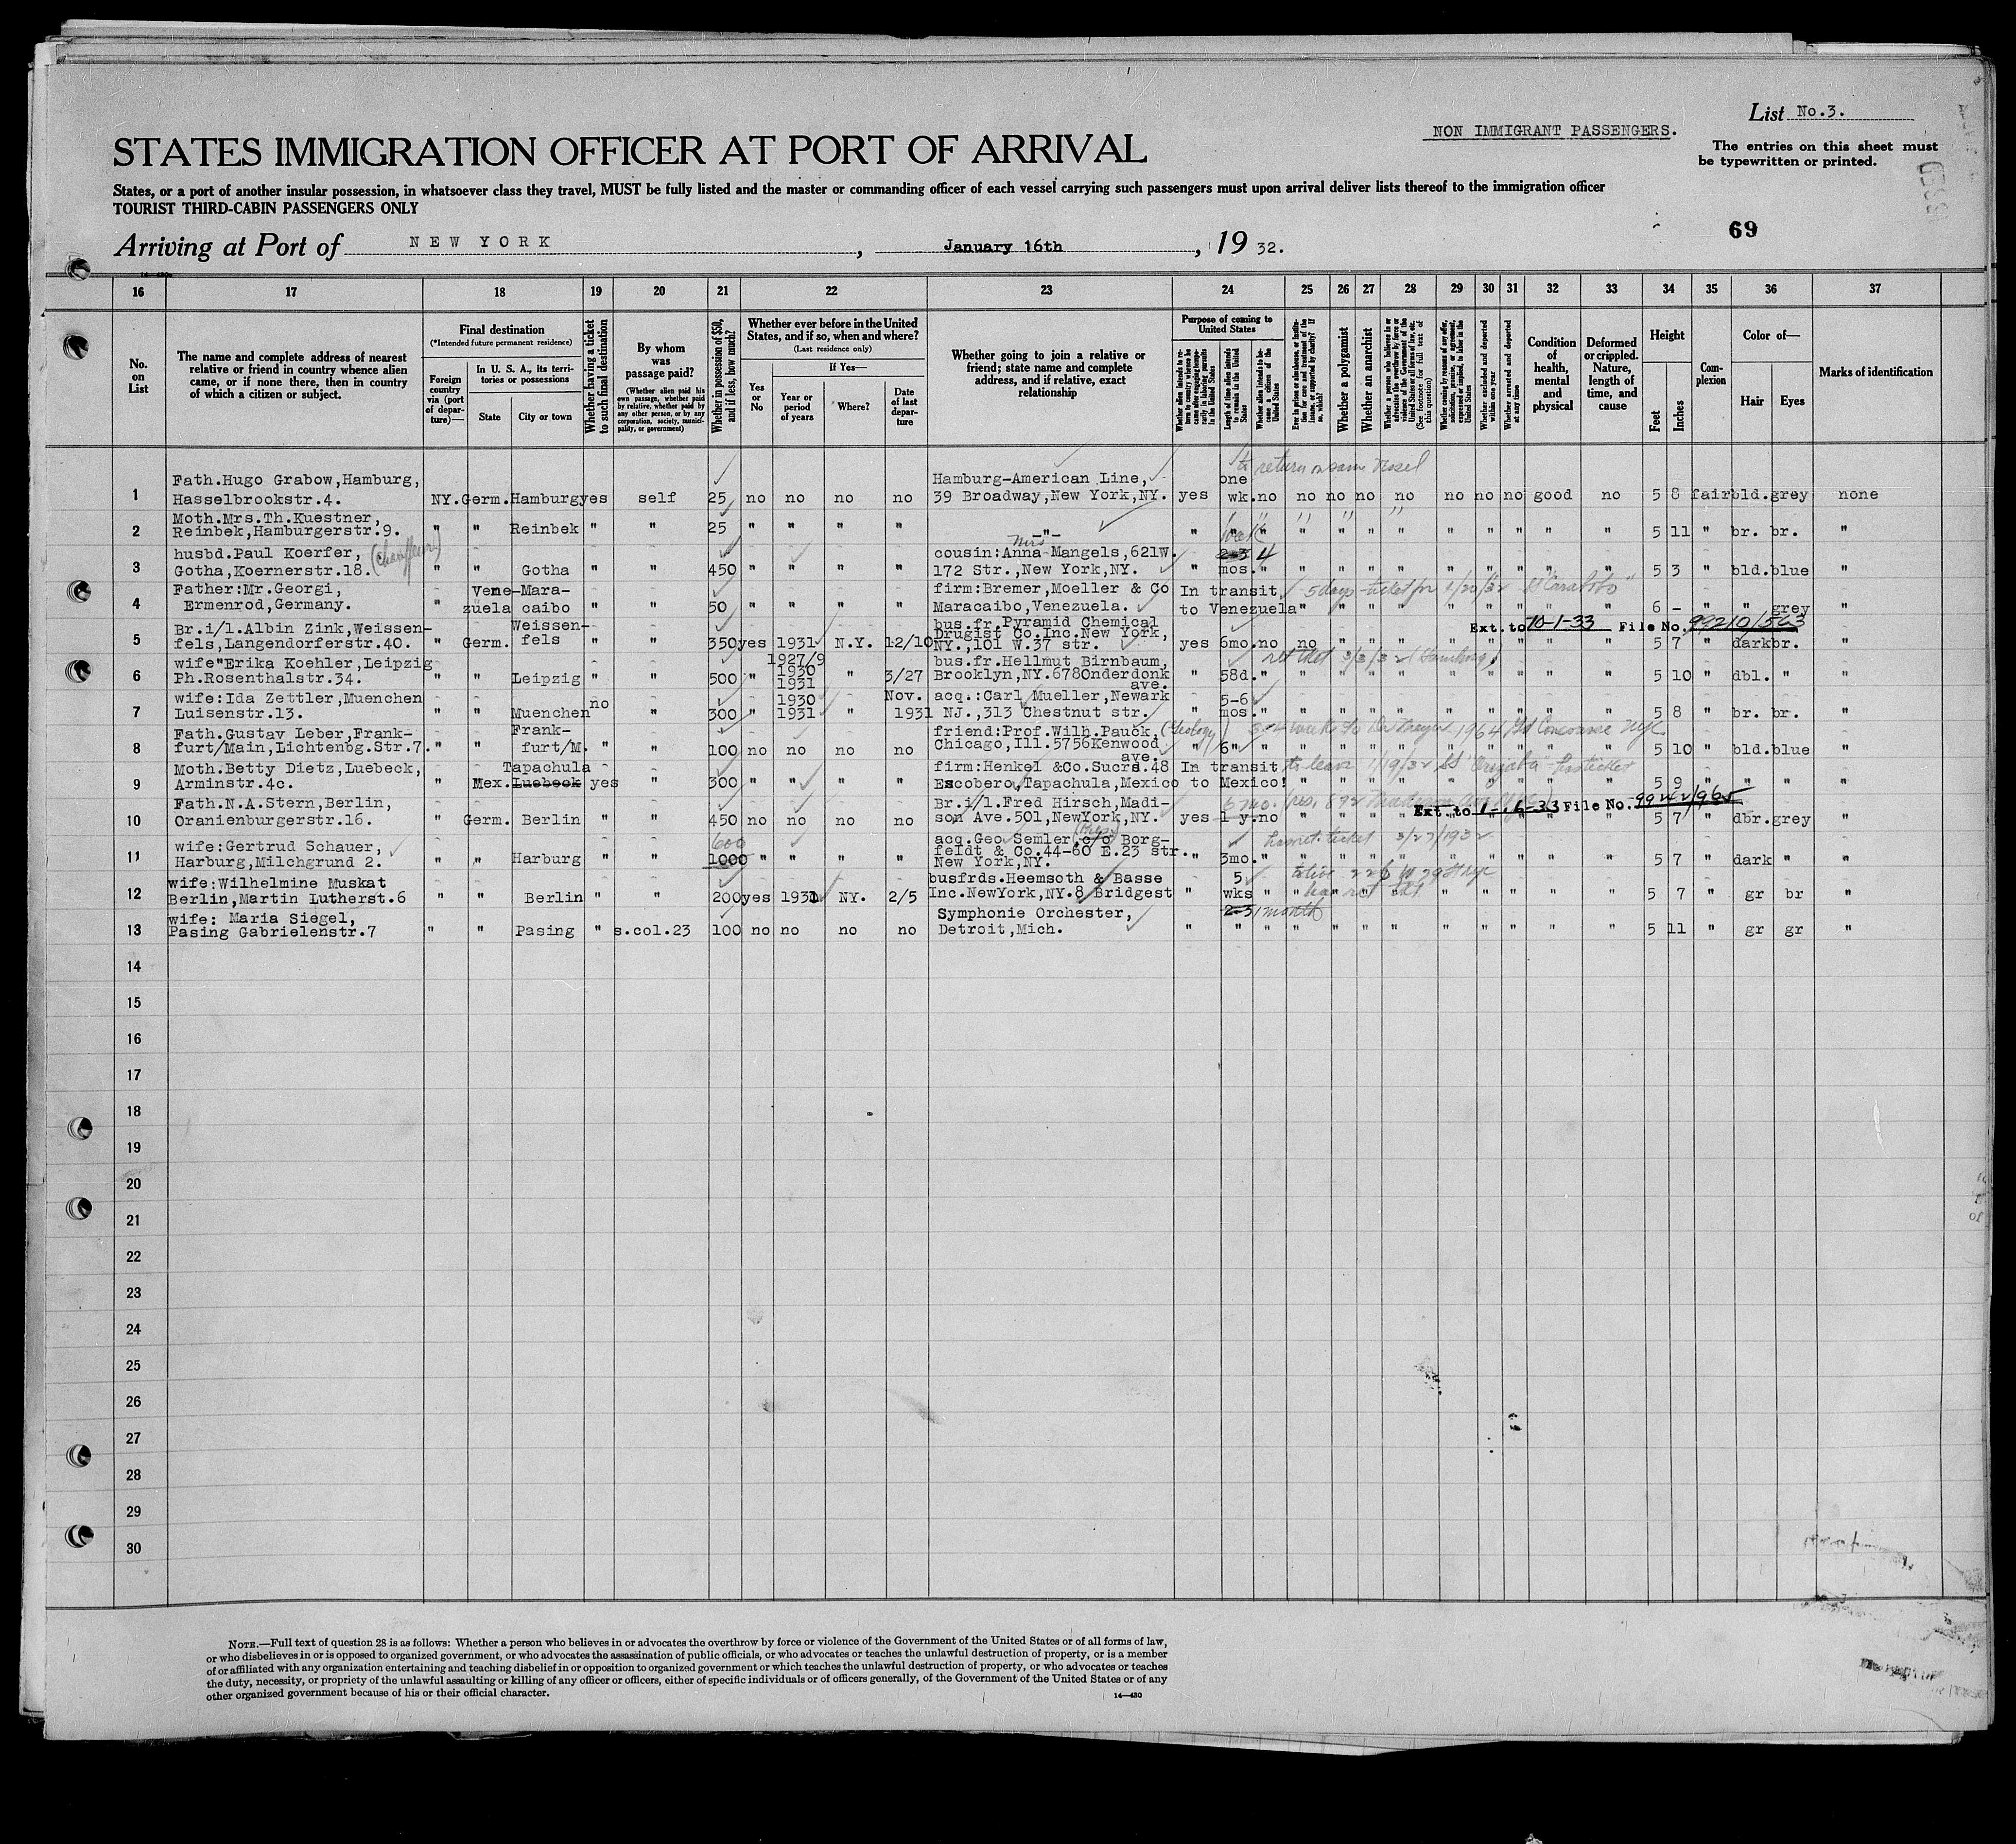 List No.3.
NON IMMIGRANT PASSENGERS.
STATES IMMIGRATION OFFICER AT PORT OF ARRIVAL
The entries on this sheet must
be typewritten or printed.
States, or a port of another insular possession, in whatsoever class they travel, MUST be fully listed and the master or commanding officer of each vessel carrying such passengers must upon arrival deliver lists thereof to the immigration officer
TOURIST THIRD-CABIN PASSENGERS ONLY
69
Arriving at Port of NEW YORK, January 16th, 19 32.
16 17 18 19 20 21 22 23 24 25 26 27 28 29 30 31 32 33 34 35 36 37
No. on List
The name and complete address of nearest relative or friend in country whence alien came, or if none there, then in country of which a citizen or subject.
Final destination
(*Intended future permanent residence)
Foreign country via (port of departure)—
In U. S. A., its territories or possessions
State City or town
Whether having a ticket to such final destination
By whom was passage paid?
(Whether alien paid his own passage, whether paid by relative, whether paid by any other person, or by any corporation, society, municipality, or government)
Whether in possession of $50, and if less, how much?
Whether ever before in the United States, and if so, when and where?
(Last residence only)
Yes or No
If Yes—
Year or period of years
Where?
Date of last departure
Whether going to join a relative or friend; state name and complete address, and if relative, exact relationship
Purpose of coming to United States
Length of time alien intends to remain in the United States
Whether alien intends to become a citizen of the United States
Whether a polygamist
Whether an anarchist
(See footnote for full text of this question)
Whether excluded and deported within one year
Whether arrested and deported at any time
Condition of health, mental and physical
Deformed or crippled. Nature, length of time, and cause
Height
Feet Inches
Complexion
Color of—
Hair Eyes
Marks of identification
to return on same vessel
Fath.Hugo Grabow,Hamburg, Hamburg-American Line, one
1 Hasselbrookstr.4. NY. Germ. Hamburg yes self 25 no no no no 39 Broadway,New York,NY. yes wk. no no no no no no no no good no 5 8 fair bld. grey none
Moth.Mrs.Th.Kuestner,
2 Reinbek,Hamburgerstr.9. " " Reinbek " " 25 " " " " -"- " " " " " " " " " " " " 5 11 " br. br. "
husbd.Paul Koerfer, (chauffeur) cousin: Mrs Anna Mangels,621W. 2-3 4
3 Gotha,Koernerstr.18. " " Gotha " " 450 " " " " 172 Str.,New York,NY. " mos. " " " " " " " " " " 5 3 " bld. blue "
Father:Mr.Georgi, Vene- Mara- firm:Bremer,Moeller & Co In transit 5 days - ticket for 1/20/32 SS "Carabobo"
4 Ermenrod,Germany. " zuela caibo " " 50 " " " " Maracaibo,Venezuela. to Venezuela " " " " " " " " " 6 - " " grey "
Br.i/l.Albin Zink,Weissen- Weissen- bus.fr.Pyramid Chemical Ext. to 10-1-33 File No. 99210/563
5 fels,Langendorferstr.40. " Germ. fels " " 350 yes 1931 N.Y. 12/10 Drugist Co.Inc.New York, NY.,101 W.37 str. yes 6mo. no no " " " " " " " " 5 7 " dark br. "
wife"Erika Koehler,Leipzig 1927/9 bus.fr.Hellmut Birnbaum,
6 Ph.Rosenthalstr.34. " " Leipzig " " 500 " 1930 1931 " 3/27 Brooklyn,NY.678Onderdonk ave. " 58d. " " " " " " " " " " 5 10 " dbl. " "
wife:Ida Zettler,Muenchen no 1930 Nov. acq.:Carl Mueller,Newark 5-6
7 Luisenstr.13. " " Muenchen " 300 " 1931 " 1931 NJ.,313 Chestnut str. " mos. " " " " " " " " " " 5 8 " br. br. "
Fath.Gustav Leber,Frank- Frank- friend:Prof.Wilh.Pauck, (Geology)
8 furt/Main,Lichtenbg.Str.7. " " furt/M. " " 100 no no no no Chicago,Ill.5756Kenwood ave. " 6" " " " " " " " " " " 5 10 " bld. blue "
Moth.Betty Dietz,Luebeck, Tapachula firm:Henkel &Co.Sucrs.48 In transit to leave 1/19/32 SS "Orizaba"
9 Arminstr.4c. " Mex. Luebeck yes " 300 " " " " Escobero,Tapachula,Mexico to Mexico! " " " " " " " " " 5 9 " " " "
Fath.N.A.Stern,Berlin, Br.i/l.Fred Hirsch,Madi- 6 mo. Ext. to 1-16-33 File No. 99242/965
10 Oranienburgerstr.16. " Germ. Berlin " " 450 no no no no son Ave.501,NewYork,NY. yes 1 y. no " " " " " " " " " 5 7 " dbr. grey "
wife:Gertrud Schauer, 600 acq.Geo Semler, c/o Borg- has ret. ticket 3/27/1932
11 Harburg,Milchgrund 2. " " Harburg " " 1000 " " " " feldt & Co.44-60 E.23 str. New York,NY. " 3mo. " " " " " " " " " " 5 7 " dark " "
wife:Wilhelmine Muskat busfrds.Heemsoth & Basse 5
12 Berlin,Martin Lutherst.6 " " Berlin " " 200 yes 1931 NY. 2/5 Inc.NewYork,NY.8 Bridgest " wks " " " " " " " " " " 5 7 " gr br "
wife: Maria Siegel, Symphonie Orchester, 2-3 1 month
13 Pasing Gabrielenstr.7 " " Pasing " s.col.23 100 no no no no Detroit,Mich. " " " " " " " " " " " " 5 11 " gr gr "
14
15
16
17
18
19
20
21
22
23
24
25
26
27
28
29
30
NOTE.—Full text of question 28 is as follows: Whether a person who believes in or advocates the overthrow by force or violence of the Government of the United States or of all forms of law,
or who disbelieves in or is opposed to organized government, or who advocates the assassination of public officials, or who advocates or teaches the unlawful destruction of property, or is a member
of or affiliated with any organization entertaining and teaching disbelief in or opposition to organized government or which teaches the unlawful destruction of property, or who advocates or teaches
the duty, necessity, or propriety of the unlawful assaulting or killing of any officer or officers, either of specific individuals or of officers generally, of the Government of the United States or of any
other organized government because of his or their official character.
14—430